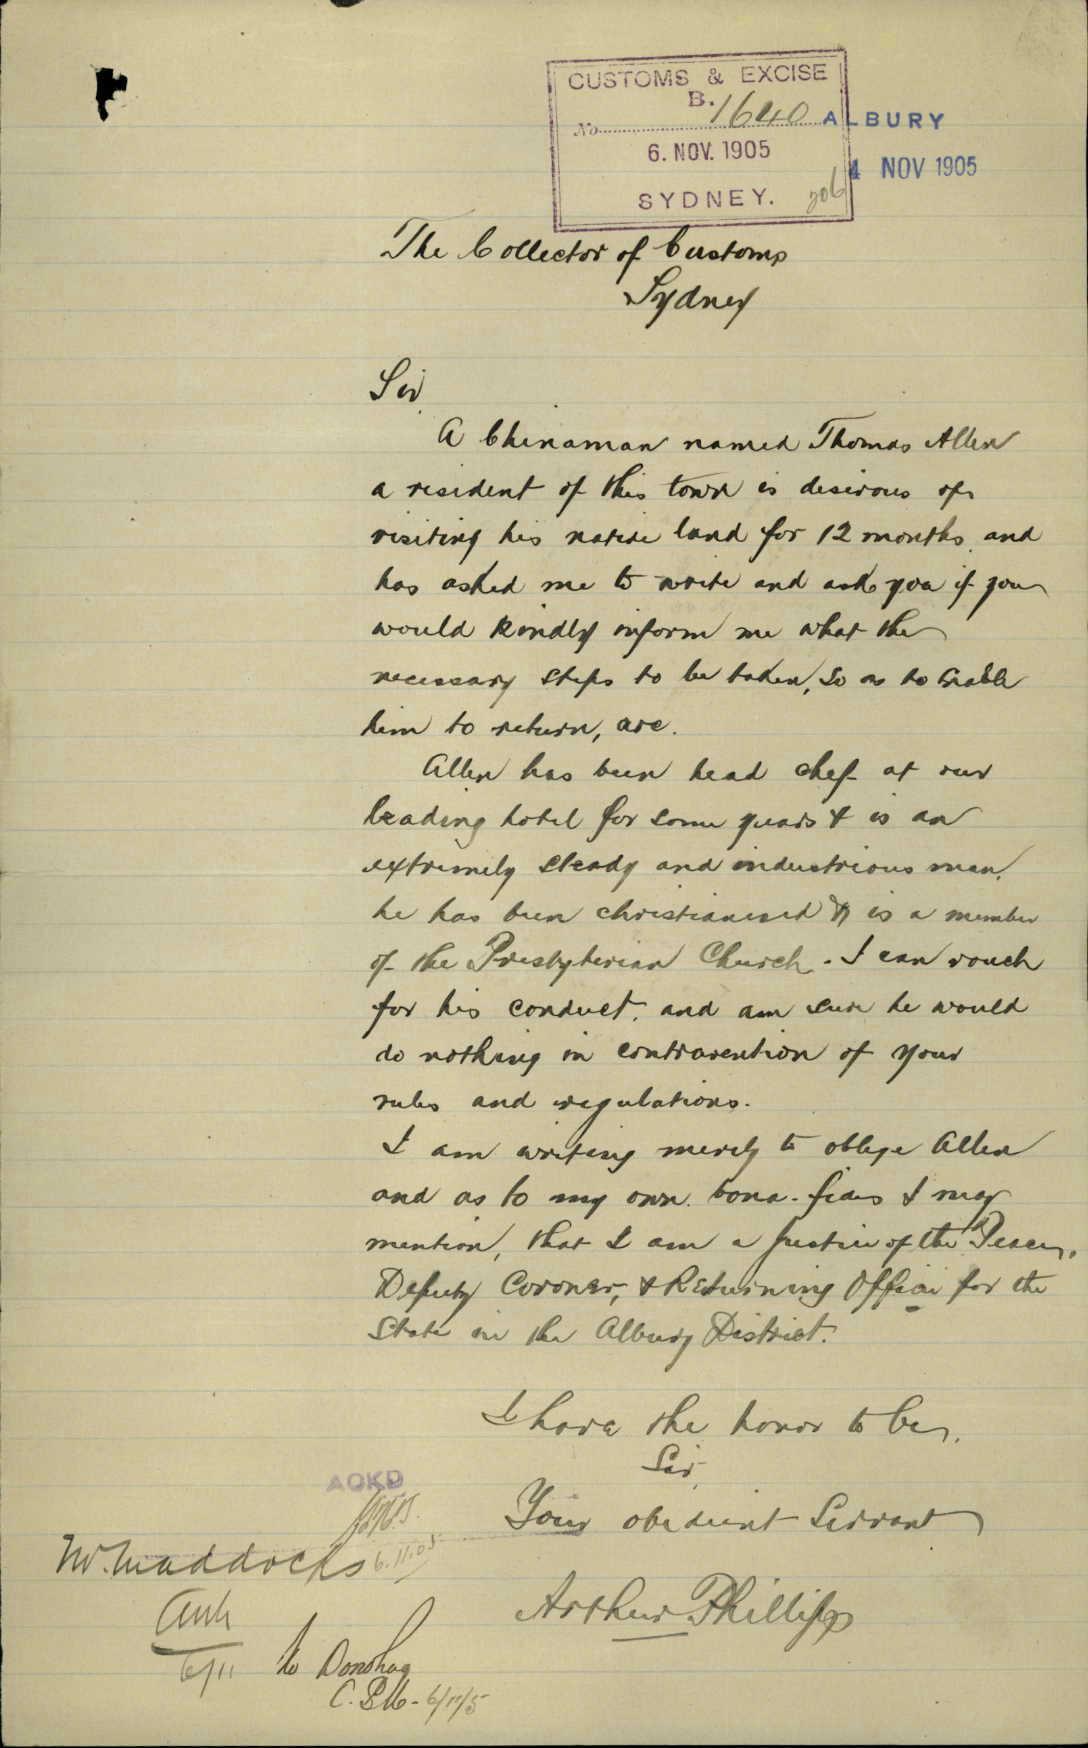 CUSTOMS & EXCISE
B.
No 1640
6. NOV. 1905
SYDNEY.
ALBURY
4 NOV 1905
206
The Collector of Customs
Sydney
Sir
A Chinaman named Thomas Allen
a resident of this town is desirous of
visiting his native land for 12 months, and
has asked me to write and ask you if you
would kindly inform me what the
necessary steps to be taken, so as to enable
him to return, are.
Allen has been head chef at our
leading hotel for some years & is an
extremely steady and industrious man.
he has been christianised & is a member
of the Presbyterian Church. I can vouch
for his conduct, and am sure he would
do nothing in contravention of your
rules and regulations.
I am writing merely to oblige Allen
and as to my own bona-fides I may
mention, that I am a Justice of the Peace,
Deputy Coroner, & Returning Officer for the
State in the Albury District.
I have the honor to be,
Sir
Your obedient Servant
Arthur Phillips
ACKD
6.11.05
Mr. Maddocks
6/11
Mr Donohoe
6/11/5